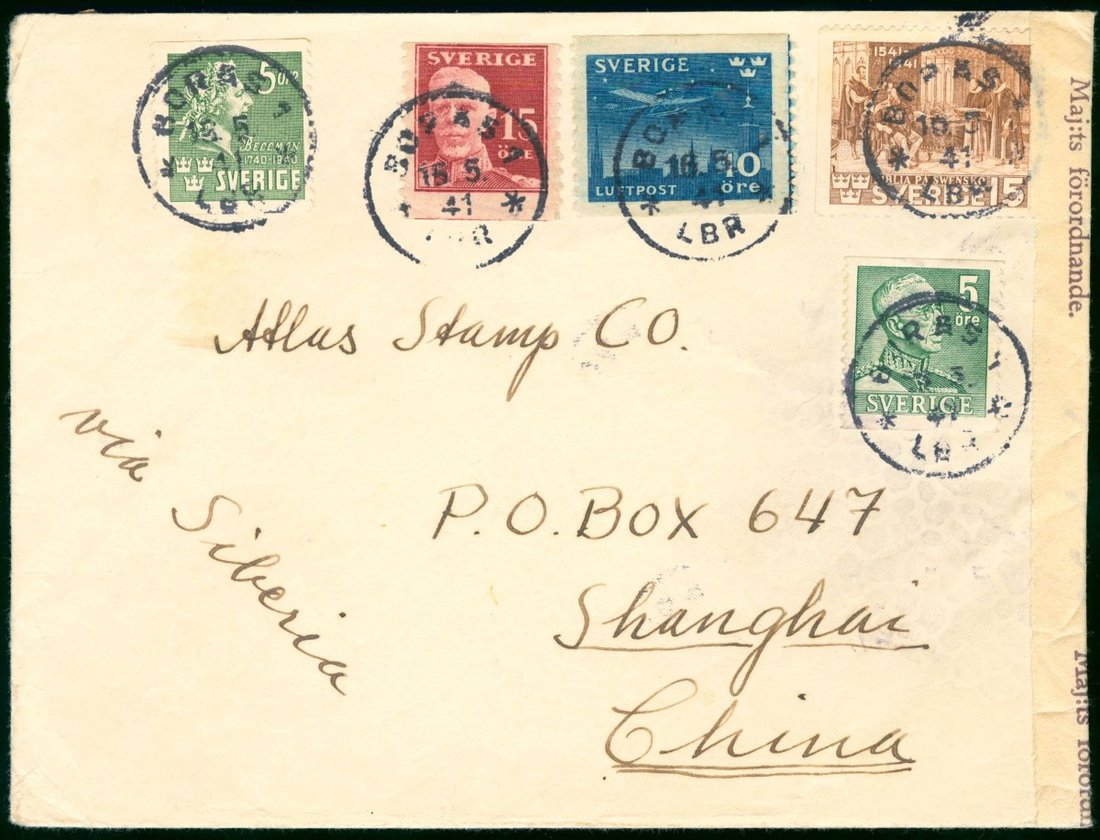 5 ÖRE
BELLMAN
1740-1940
SVERIGE
BORÅS 1
16.5.
41
LBR
SVERIGE
15
ÖRE
BORÅS 1
16.5.
41
LBR
SVERIGE
10
LUFTPOST öre
BORÅS 1
16.5.
41
LBR
1541
BIBLIA PÅ SWENSKO
SVERIGE 15
BORÅS 1
16.5
41
LBR
5
öre
SVERIGE
41
LBR
Atlas Stamp CO.
via Siberia
P.O. BOX 647
Shanghai
China
Maj:ts förordnande.
Maj:ts förordn